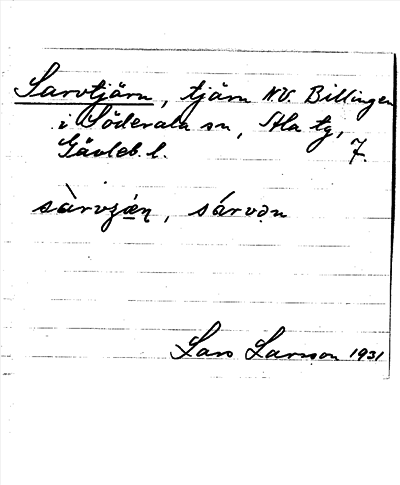 Sarvtjärn, tjärn N.V. Billingen
i Söderala sn, Ala tg,
Gävleb. l. 7.
sàrvʒæɳ, sárvən
Lars Larsson 1931